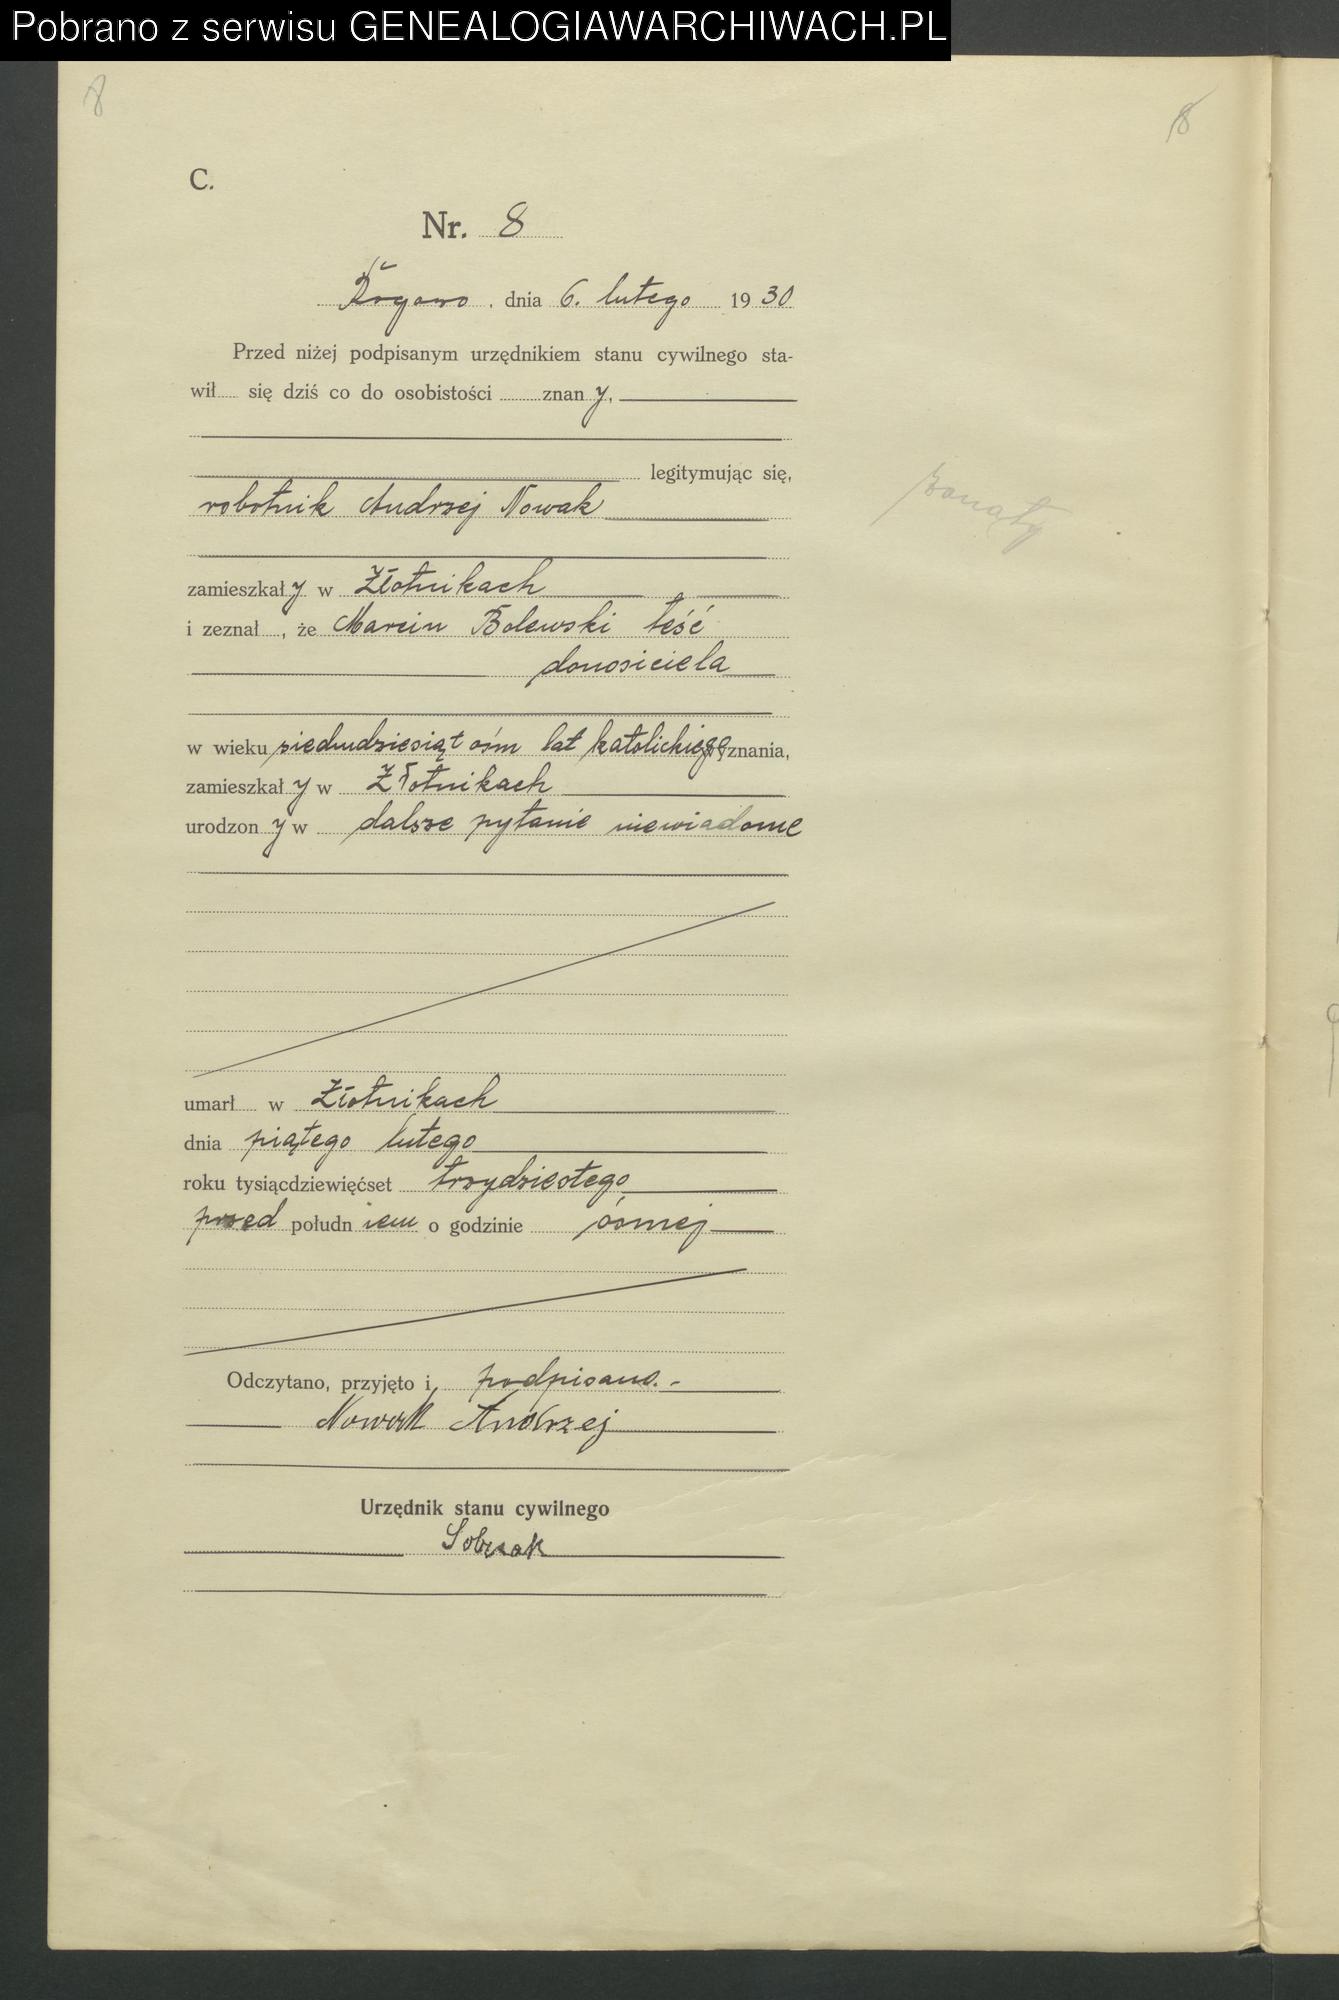 Pobrano z serwisu GENEALOGIAWARCHIWACH.PL
8
8
C.
Nr. 8
dnia 6. lutego 1930
Przed niżej podpisanym urzędnikiem stanu cywilnego sta-
wił się dziś co do osobistości znany,
legitymując się,
robotnik Andrzej Nowak
zamieszkały w Złotnikach
i zeznał, że Marcin Bolewski teść
donosiciela
w wieku siedmdziesiąt ośm lat katolickiego wyznania,
zamieszkały w Złotnikach
urodzony w dalsze pytanie niewiadome
umarł w Złotnikach
dnia piątego lutego
roku tysiącdziewięćset trzydziestego
przed południem o godzinie ósmej
Odczytano, przyjęto i podpisano.-
Nowak Andrzej
Urzędnik stanu cywilnego
Sobczak